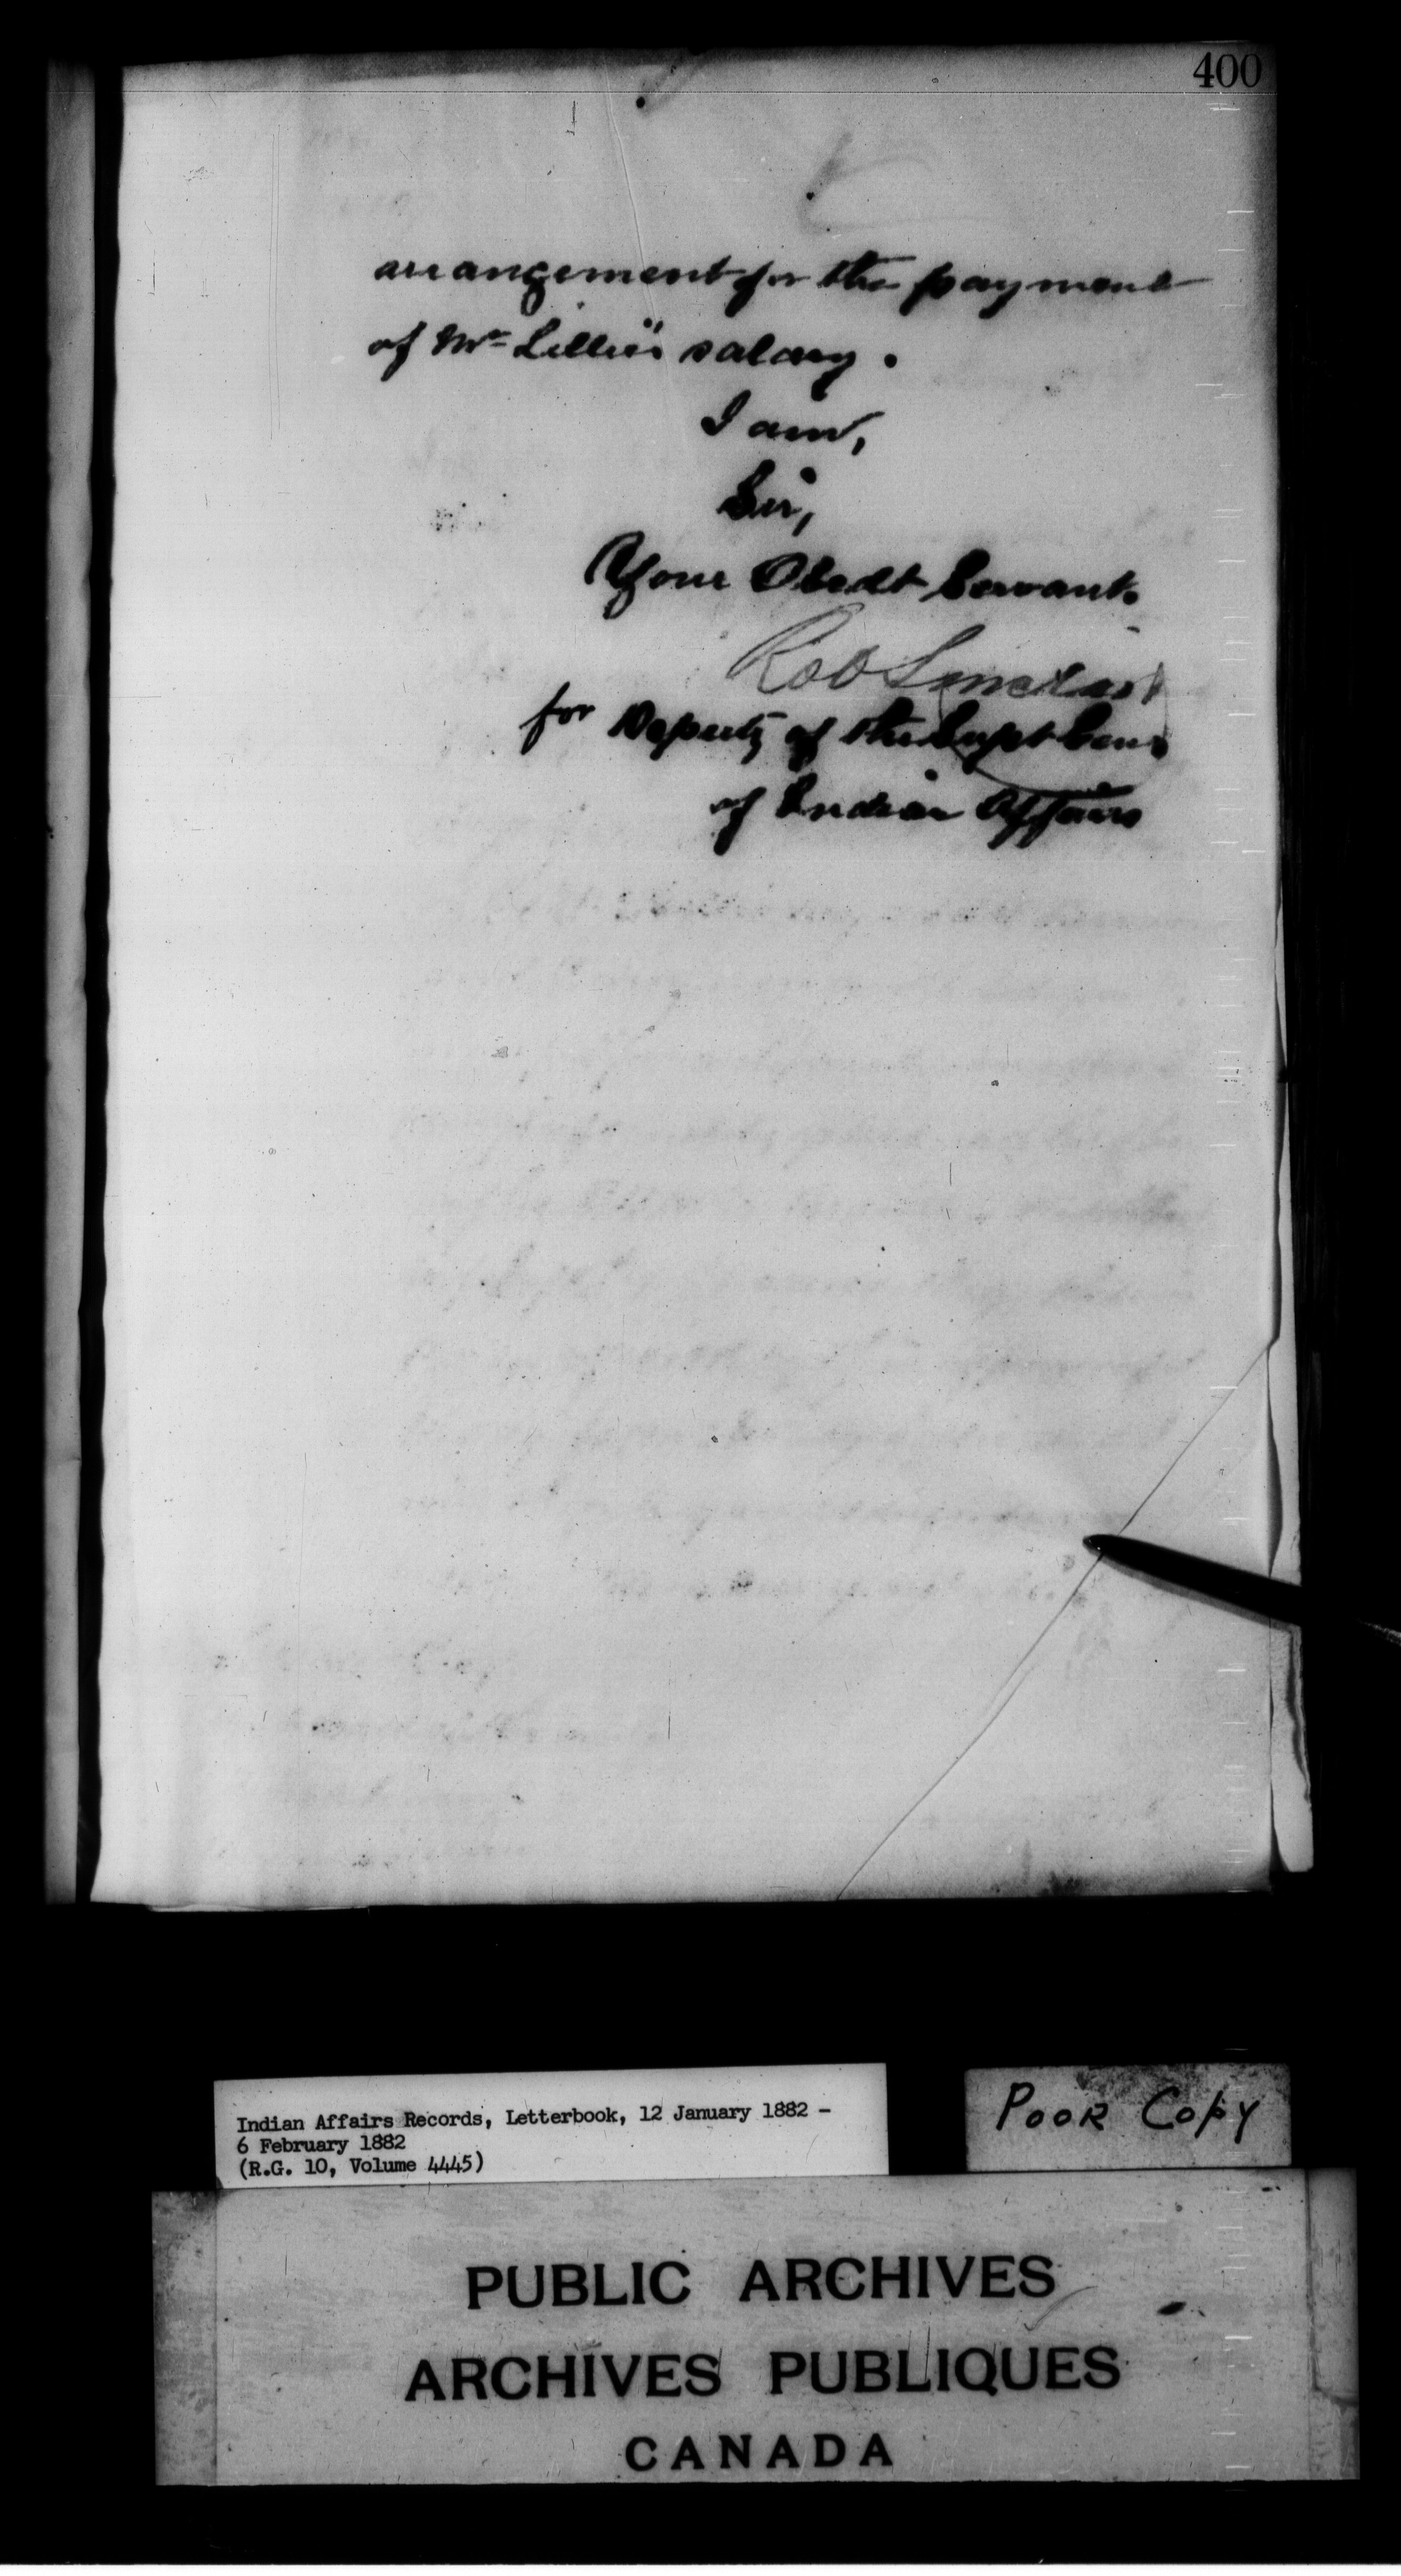 400
arrangement for the payment
of Mr Lillie's salary.
I am,
Sir,
Your Obedt Servant.
Rob Sinclair
for Deputy of the Supt Genl
of Indian Affairs
Indian Affairs Records, Letterbook, 12 January 1882 -
6 February 1882
(R.G. 10, Volume 4445)
POOR COPY
PUBLIC ARCHIVES
ARCHIVES PUBLIQUES
CANADA